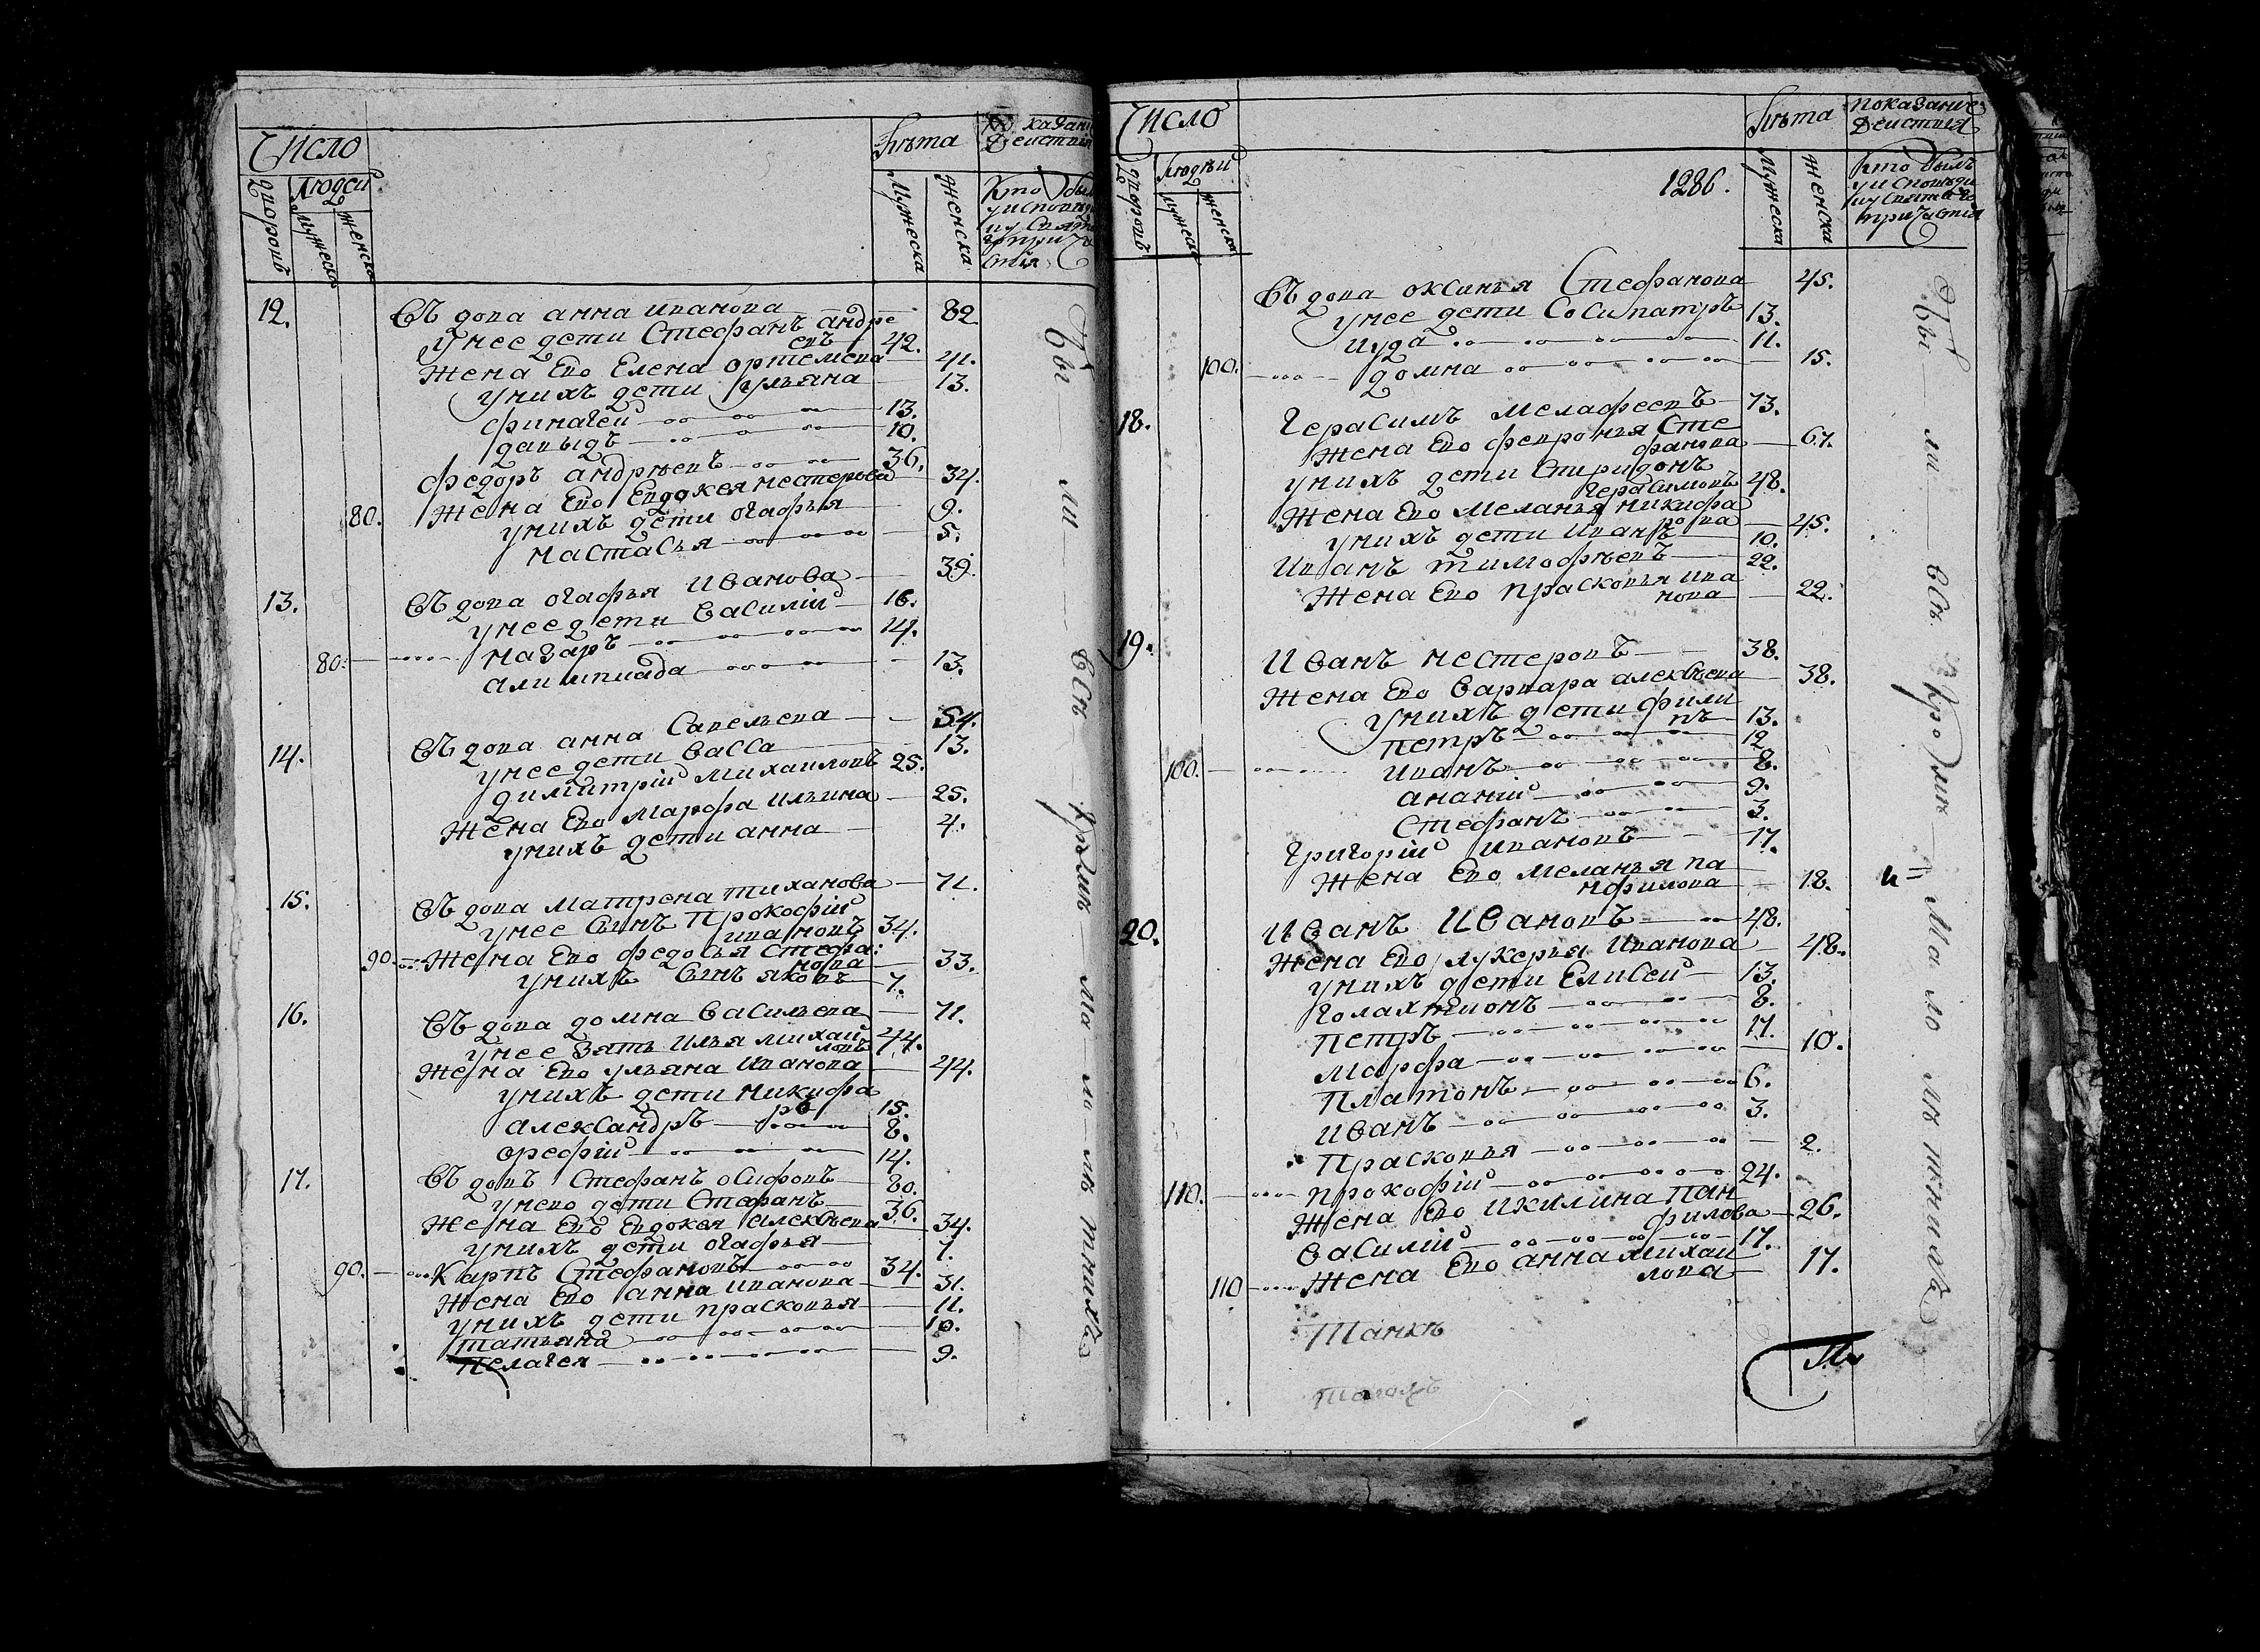 Число
Лѣта
показани
Действия
дворовъ
Людей
Мужеска
Женска
Мужеска
Женска
Кто был
у исповед
и у Свято
го прича
стия
12.
Въдова анна иванова 82
у нее дети Стефанъ андре
евъ 42.
Жена Ево Елена ортемева 41.
у нихъ дети ульяна 13.
финагей 13.
давыдъ 10.
федоръ андрѣевъ 36.
80. Жена Ево Евдокея нестерова 34.
у нихъ дети огафья 9.
настасья 5.
13. Въдова огафья Иванова 39.
у нее дети Василий 16.
80. назаръ 14.
алимпиада 13.
14. Въдова анна Савельева 54.
у нее дети Васса 13.
димитрий михаиловъ 25.
Жена Ево Марфа ильина 25.
у нихъ дети анна 4.
15. Въдова Матрена тиханова 71.
у нее Сынъ Прокофий
ивановъ 34.
90. Жена Ево федосья Стефа:
нова 33.
у нихъ Сынъ яковъ 7.
16. Въдова домна Васильева 71.
у нее зять илья михаи
ловъ 44.
Жена Ево ульяна иванова 44.
у нихъ дети никифо
ръ 15.
александръ 8.
орефий 14.
17. Въдовъ Стефанъ осифовъ 80.
у нево дети Стефанъ 36.
Жена Ево Евдокея алексѣева 34.
у нихъ дети огафья 7.
90. Карпъ Стефановъ 34.
Жена Ево анна иванова 31.
у нихъ дети прасковья 11.
татьяна 10.
пелагея 9.
Бы ли всѣ кромѣ мало лѣтнихъ
Число
1286.
Лѣта
показание
Действия
дворовъ
Людѣй
Мужеска
Женска
Мужеска
Женска
Кто былъ
у исповѣди
и у Святаго
причастия
Въдова оксинья Стефанова 45.
у нее дети Сосипатръ 13.
иуда 11.
100. домна 15.
18. Герасимъ мелафеевъ 73.
Жена Ево февронья Сте
фанова 67.
у нихъ дети Спиридонъ
герасимовъ 48.
Жена Ево Меланья никифо
рова 45.
у нихъ дети иванъ 10.
Иванъ тимофѣевъ 22.
Жена Ево прасковья ива
нова 22.
19. Иванъ нестеровъ 38.
Жена Ево Варвара алексѣева 38.
у нихъ дети фили
пъ 13.
петръ 12.
100. иванъ 8.
ананий 9.
Стефанъ 3.
григорий ивановъ 17.
Жена Ево меланья па
нфилова 18.
20. Иванъ Ивановъ 48.
Жена Ево лукерья иванова 48.
у нихъ дети Елисей 13.
голахтионъ 8.
петръ 17.
Марфа 10.
платонъ 6.
Иванъ 3.
Прасковья 2.
110. прокофий 24.
Жена Ево икилина пан
филова 26.
Василий 17.
110 Жена Ево анна михаи
лова 17.
Бы ли всѣ кромѣ мало лѣтнихъ